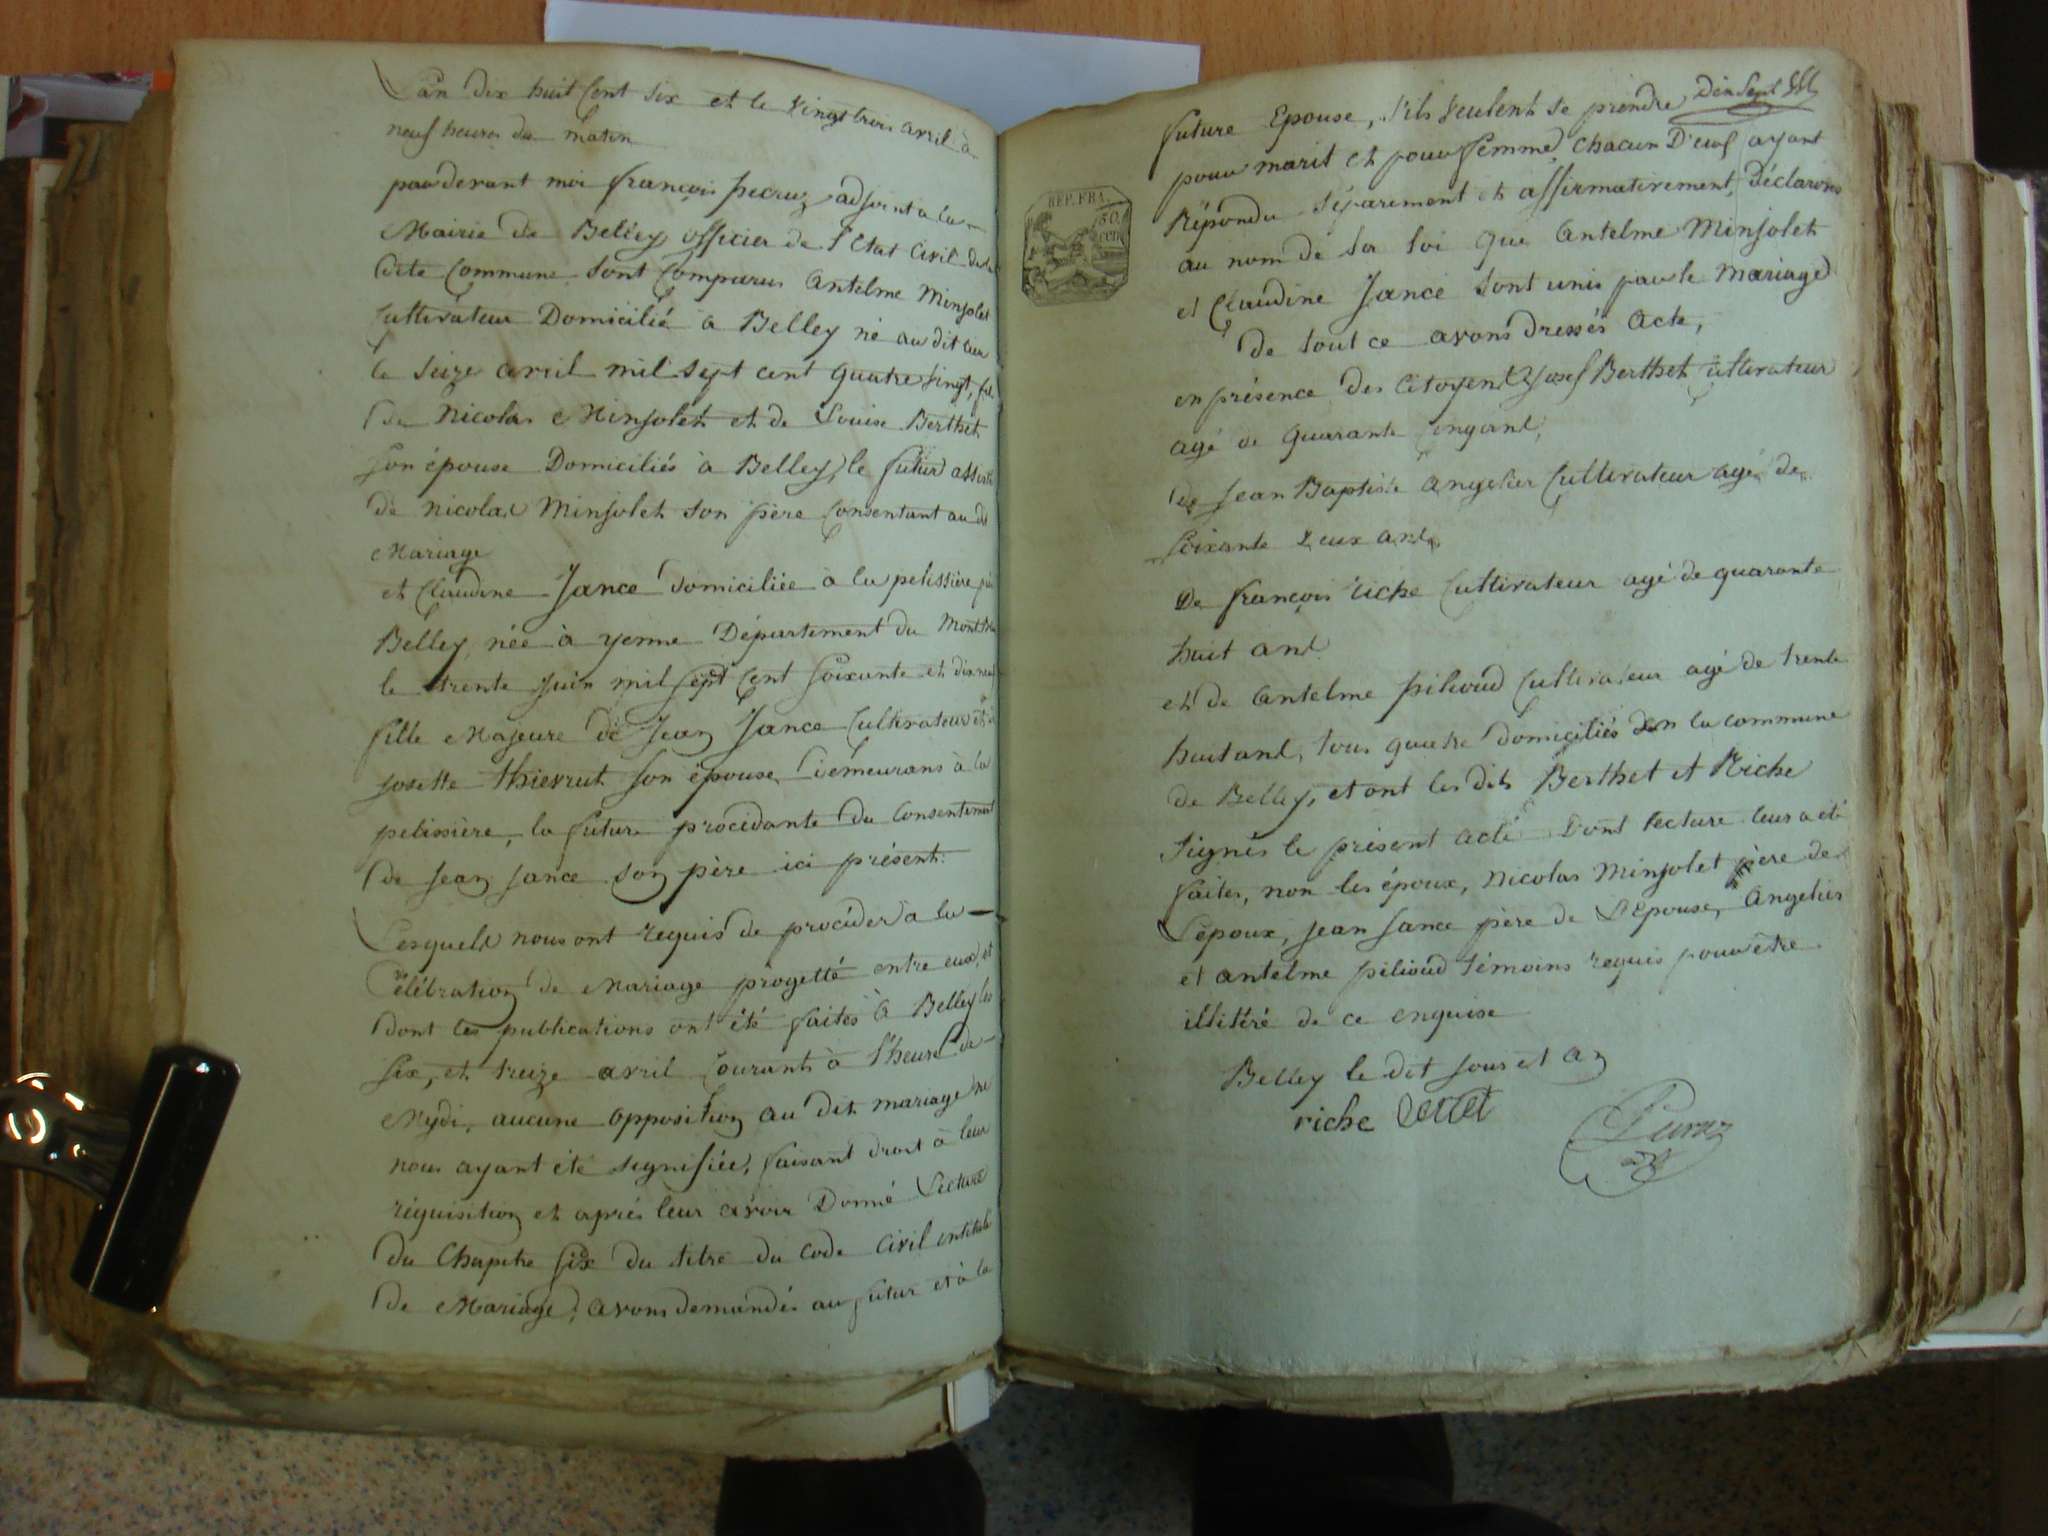 L'an dix huit Cent six et le vingt trois avril à
neuf heures du matin
pardevant moi françois pecruz adjoint a la
Mairie de Belley officier de l'Etat Civil de la
dite Commune sont Comparus antelme Minjolet
Cultivateur Domicilié à Belley né au dit lieu
le seize avril mil sept cent quatre vingt, fils
de Nicolas Minjolet et de Louise Berthet
son épouse Domiciliés à Belley, le futur assisté
de nicolas Minjolet son père Consentant au dt
Mariage
et Claudine Jance domiciliée à la pelissière
Belley, née à yenne Département du Montbla
le trente Juin mil sept Cent soixante et dixneuf
fille Majeure de Jean Jance Cultivateur et de
josette thievrut son épouse Demeurans à la
pelissière, la future procédante du Consentement
de jean jance son père ici présent.
Lesquels nous ont requis de procéder à la
Célébration de Mariage progetté entre eux, et
dont les publications ont été faites à Belley les
six, et treize avril Courant à l'heure de
Mydi, aucune opposition au dit mariage ne
nous ayant été signifiée, faisant droit à leur
réquisition et après leur avoir Donné Lecture
du Chapitre six du titre du Code Civil intitulé
de Mariage, avons demandés au futur et à la
Dix Sept
future Epouse, s'ils veulent se prendre
pour marit et pour femme, chacun D'eux ayant
Répondu séparement et affirmativement, Déclarons
au nom de la loi que antelme Minjolet
et Claudine Jance sont unis par le mariage
REP. FRA.
50.
cen
de tout ce avons dressés acte,
en présence des Citoyens Josef Berthet Cultivateur
agé de quarante cinq ans,
de jean Baptiste angelier Cultivateur agé de
soixante deux ans,
De françois riche Cultivateur agé de quarante
huit ans
et de antelme pilioud Cultivateur agé de trente
huit ans, tous quatre domiciliés dans la commune
de Belley, et ont les dits Berthet et Riche
signés le présent acte Dont lecture leur a été
faites, non les époux, nicolas Minjolet père de
L'époux, jean jance père de L'Epouse, Angelier
et antelme pilioud témoins requis pour être
illitéré de ce enquise
Belley le dit jour et an
riche Bertet